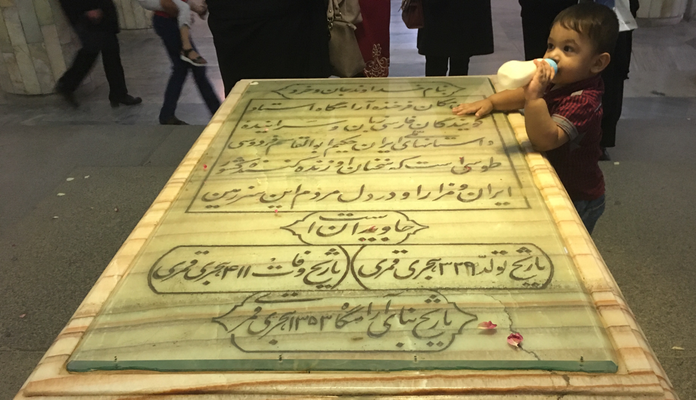 بنام خداوند جان و خرد
مکان فرخنده آرامگاه استاد
گویندگان فارسی زبان و سراینده
داستانهای ملی ایران حکیم ابوالقاسم فردوسی
طوسی است که سخنان او زنده کننده کشور
ایران و مزار او در دل مردم این سرزمین
جاویدان است
تاریخ تولد ۳۲۹ هجری قمری تاریخ وفات ۴۱۱ هجری قمری
تاریخ بنای آرامگاه ۱۳۵۳ هجری قمری